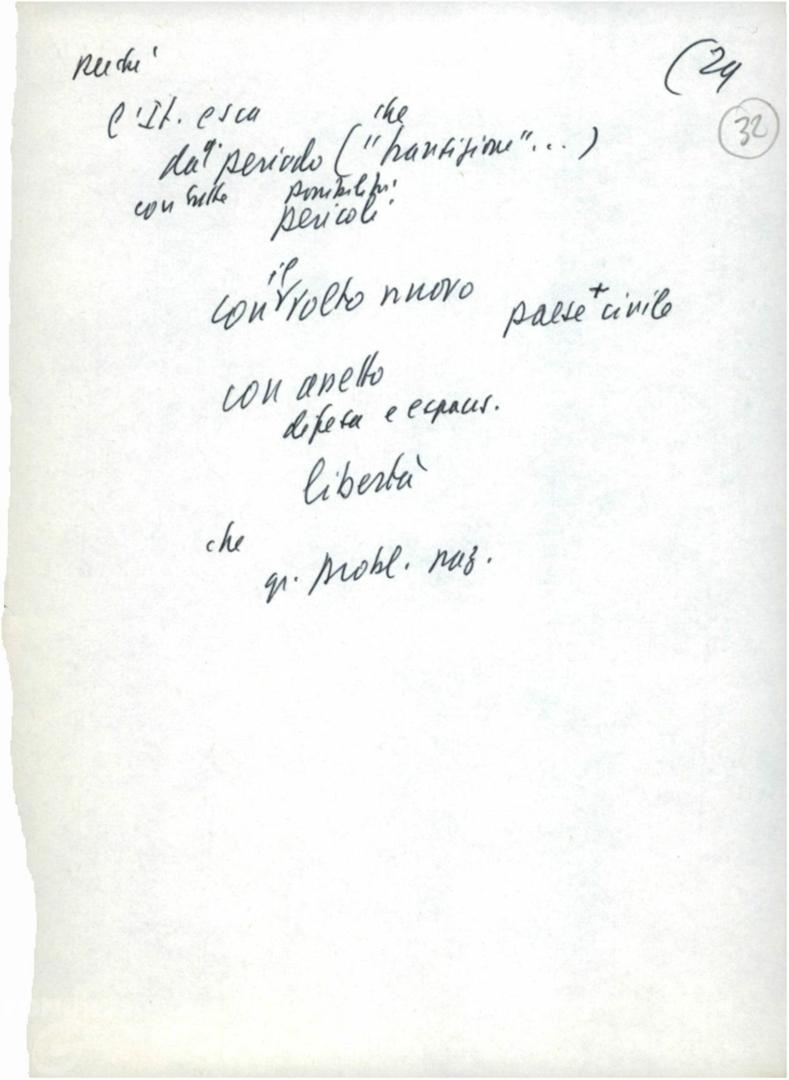 perché
(24
32
l'It. esca
che
da q. periodo ("transizione"...)
con tutte possibilità
pericoli
con il volto nuovo
paese + civile
con assetto
difesa e espans.
libertà
che
gr. probl. naz.